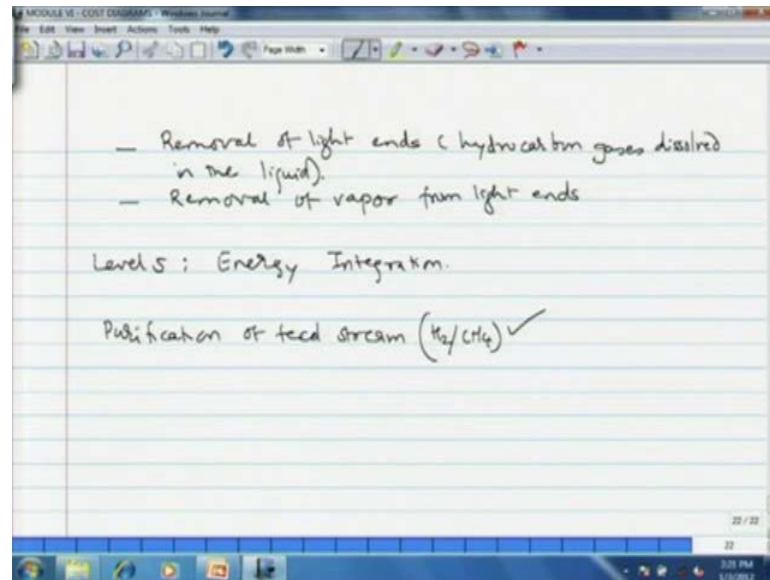 MODULE VI - COST DIAGRAMS - Windows Journal
File Edit View Insert Actions Tools Help
Page Width
— Removal of light ends (hydrocarbon gases dissolved
in the liquid).
— Removal of vapor from light ends
Level 5 : Energy Integration.
Purification of feed stream (H2/CH4) ✓
22 / 22
22
3:21 PM
1/3/2012